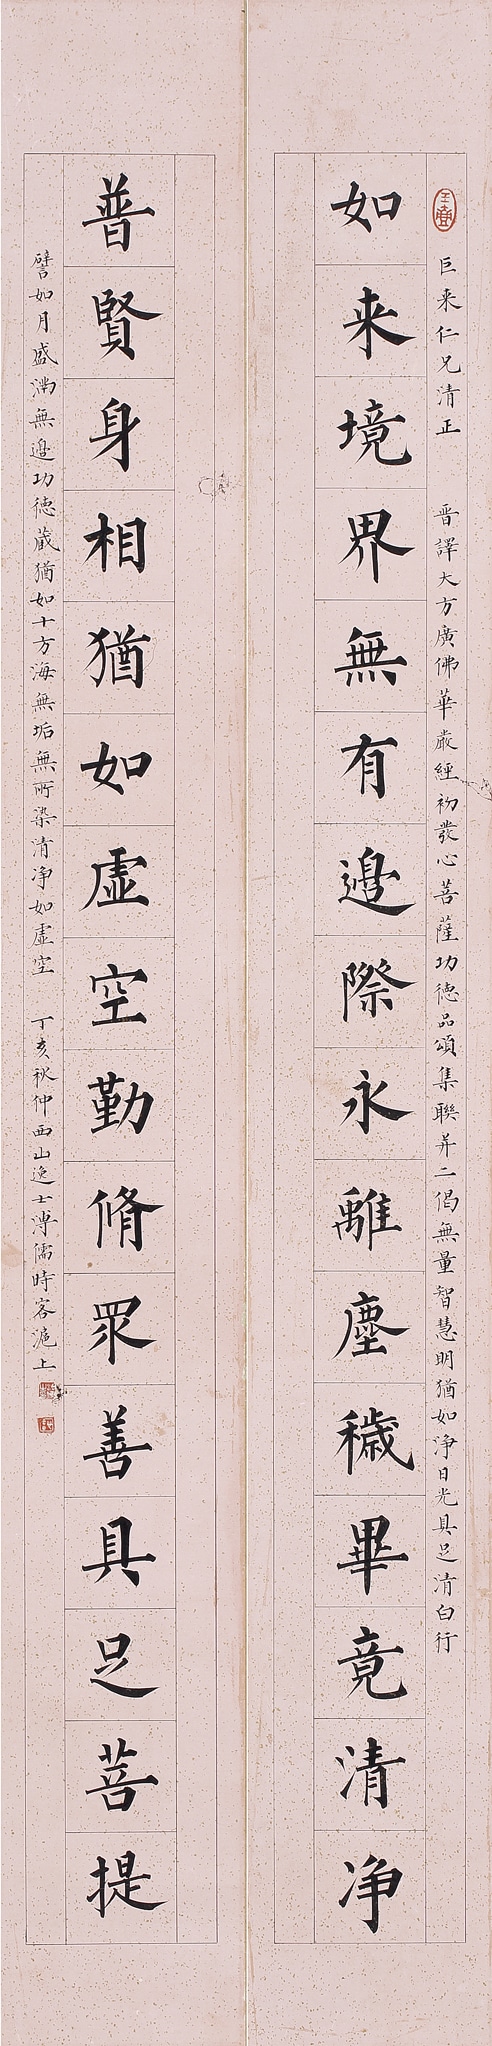 巨来仁兄清正　晋譯大方廣佛華嚴經初發心菩薩功德品頌集聯并二偈無量智慧明猶如淨日光具足清白行
如来境界無有邊際永離塵穢畢竟清净
普賢身相猶如虛空勤脩眾善具足菩提
譬如月盛滿無邊功德蔵猶如十方海無垢無所染清净如虛空　丁亥秋仲西山逸士溥儒時客滬上